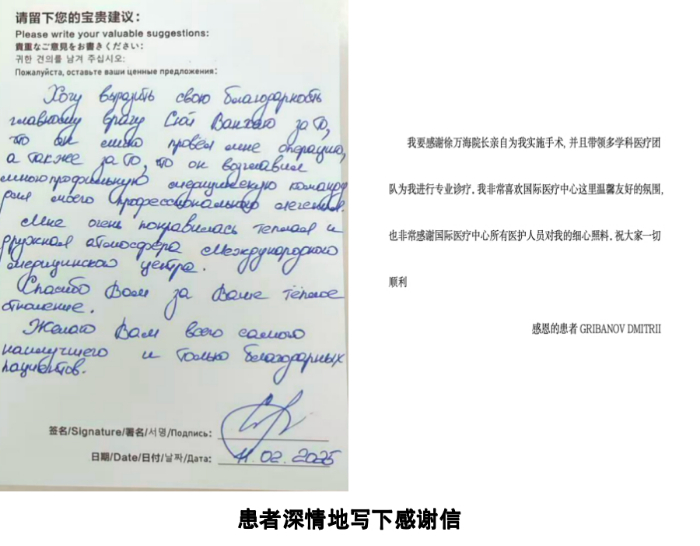 请留下您的宝贵建议：
Please write your valuable suggestions:
貴重なご意見をお書きください:
귀한 건의를 남겨 주십시오:
Пожалуйста, оставьте ваши ценные предложения:
Хочу выразить свою благодарность
главному врачу Сюй Ванхаю за то,
что он лично провёл мне операцию,
а также за то, что он возглавил
многопрофильную медицинскую команду
для моего профессионального лечения.
Мне очень понравилась теплая и
дружная атмосфера Международного
медицинского центра.
Спасибо Вам за Ваше тёплое
отношение.
Желаю Вам всего самого
наилучшего и только благодарных
пациентов.
签名/Signature/署名/서명/Подпись:
日期/Date/日付/날짜/Дата: 11.02.2025
我要感谢徐万海院长亲自为我实施手术, 并且带领多学科医疗团
队为我进行专业诊疗, 我非常喜欢国际医疗中心这里温馨友好的氛围,
也非常感谢国际医疗中心所有医护人员对我的细心照料, 祝大家一切
顺利
感恩的患者 GRIBANOV DMITRII
患者深情地写下感谢信